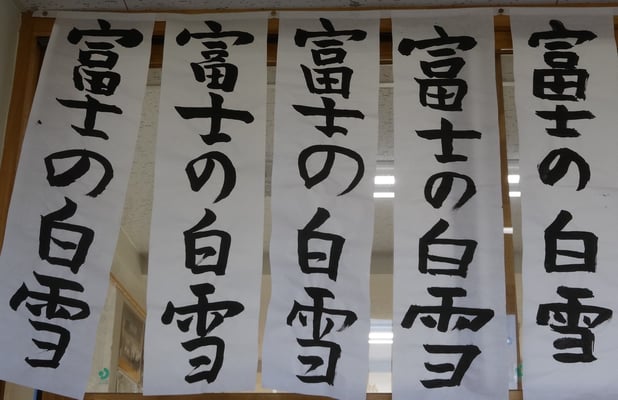 富士の白雪
富士の白雪
富士の白雪
富士の白雪
富士の白雪